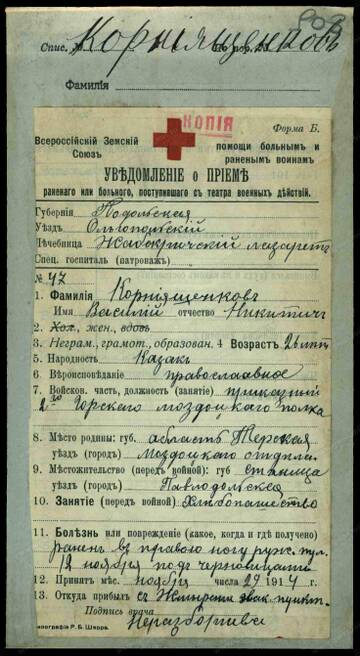 808
Спис. № Корніященковъ По пор. №
Фамилія
КОПІЯ
Форма Б.
Всероссійскій Земскій Союзъ
помощи больнымъ и раненымъ воинамъ
УВѢДОМЛЕНІЕ о ПРІЕМѢ
раненаго или больного, поступившаго съ театра военныхъ дѣйствій.
Губернія Подольская
Уѣздъ Ольгопольскій
Лѣчебница Жабокричскій лазаретъ
Спец. госпиталь (патронажъ)
№ 47
1. Фамилія Корніященковъ
Имя Василій отчество Никитичъ
2. Хол., жен., вдовъ
3. Неграм., грамот., образован. 4 Возрастъ 26 лѣтъ
5. Народность Казакъ
6. Вѣроисповѣданіе православное
7. Войсков. часть, должность (занятіе) приказный
2го Горскаго моздокскаго полка
8. Мѣсто родины: губ. область Терская
уѣздъ (городъ) Моздокскаго отдѣла
9. Мѣстожительство (передъ войной): губ станица
уѣздъ (городъ) Павлодольская
10. Занятіе (передъ войной) Хлѣбопашество
11. Болѣзнь или поврежденіе (какое, когда и гдѣ получено)
раненъ въ правою ногу руж. пул.
12 ноября подъ черновицами
12. Принятъ мѣс. ноября числа 29 1914
13. Откуда прибылъ съ Жмеринк эвак. пункт.
Подпись врача
Неразборчива
Типографія Р. Б. Шварц.